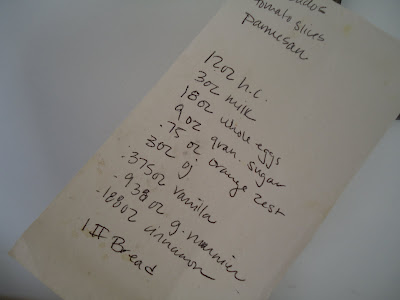 tomato slices
Parmesan
12oz h.c.
3oz milk
18oz whole eggs
9 oz gran. sugar
.75 oz orange zest
3oz gj
.375oz vanilla
.938oz g. marnier
.188oz cinnamon
1 IF Bread